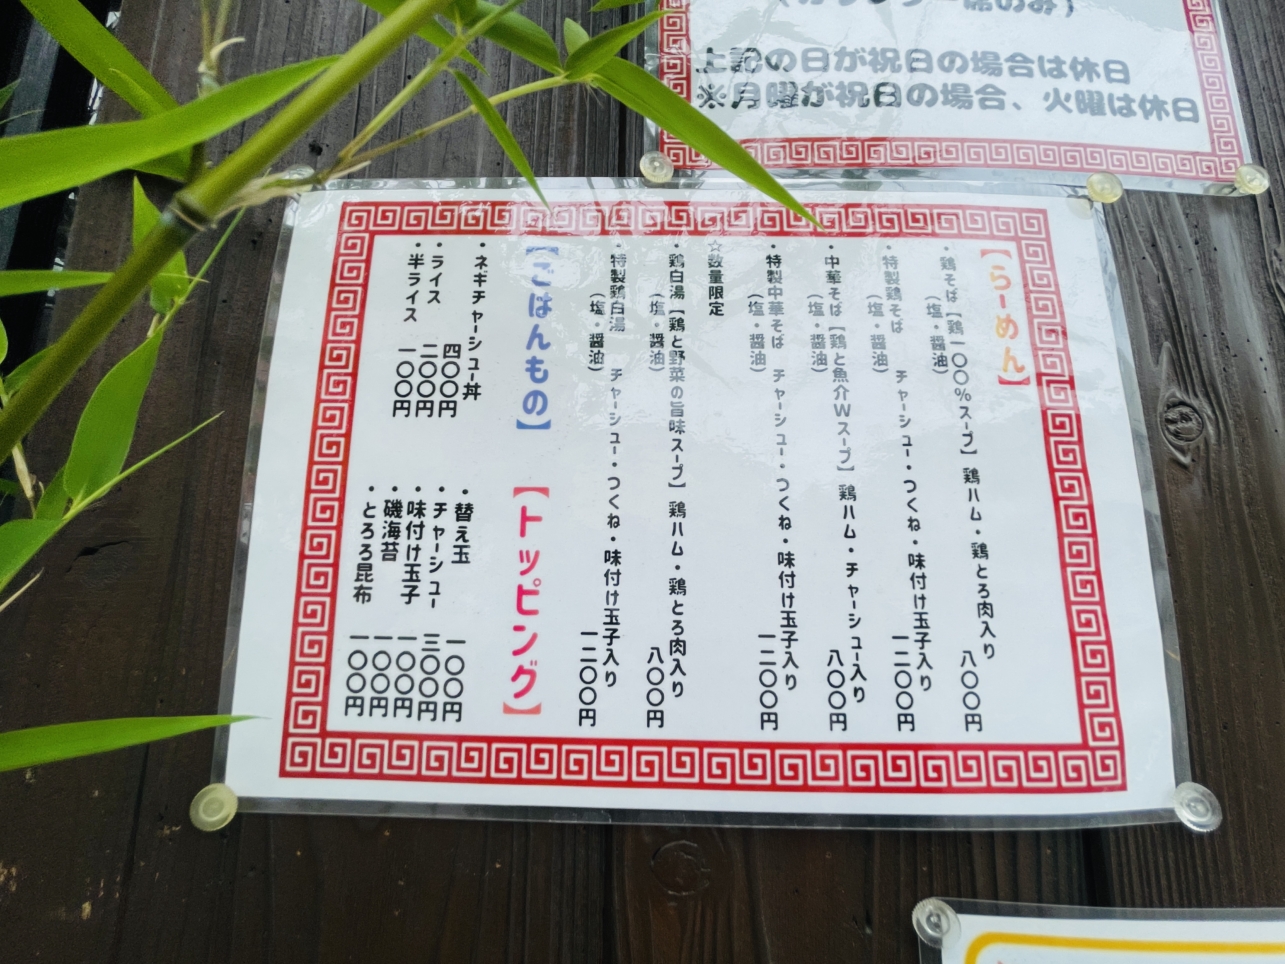 上記の日が祝日の場合は休日
※月曜が祝日の場合、火曜は休日
【らーめん】
・鶏そば【鶏一〇〇%スープ】 鶏ハム・鶏とろ肉入り
(塩・醤油) 八〇〇円
・特製鶏そば チャーシュー・つくね・味付け玉子入り
(塩・醤油) 一二〇〇円
・中華そば【鶏と魚介Wスープ】 鶏ハム・チャーシュー入り
(塩・醤油) 八〇〇円
・特製中華そば チャーシュー・つくね・味付け玉子入り
(塩・醤油) 一二〇〇円
☆数量限定
・鶏白湯【鶏と野菜の旨味スープ】 鶏ハム・鶏とろ肉入り
(塩・醤油) 八〇〇円
・特製鶏白湯 チャーシュー・つくね・味付け玉子入り
(塩・醤油) 一二〇〇円
【ごはんもの】
・ネギチャーシュー丼
四〇〇円
・ライス 二〇〇円
・半ライス 一〇〇円
【トッピング】
・替え玉 一〇〇円
・チャーシュー 三〇〇円
・味付け玉子 一〇〇円
・磯海苔 一〇〇円
・とろろ昆布 一〇〇円